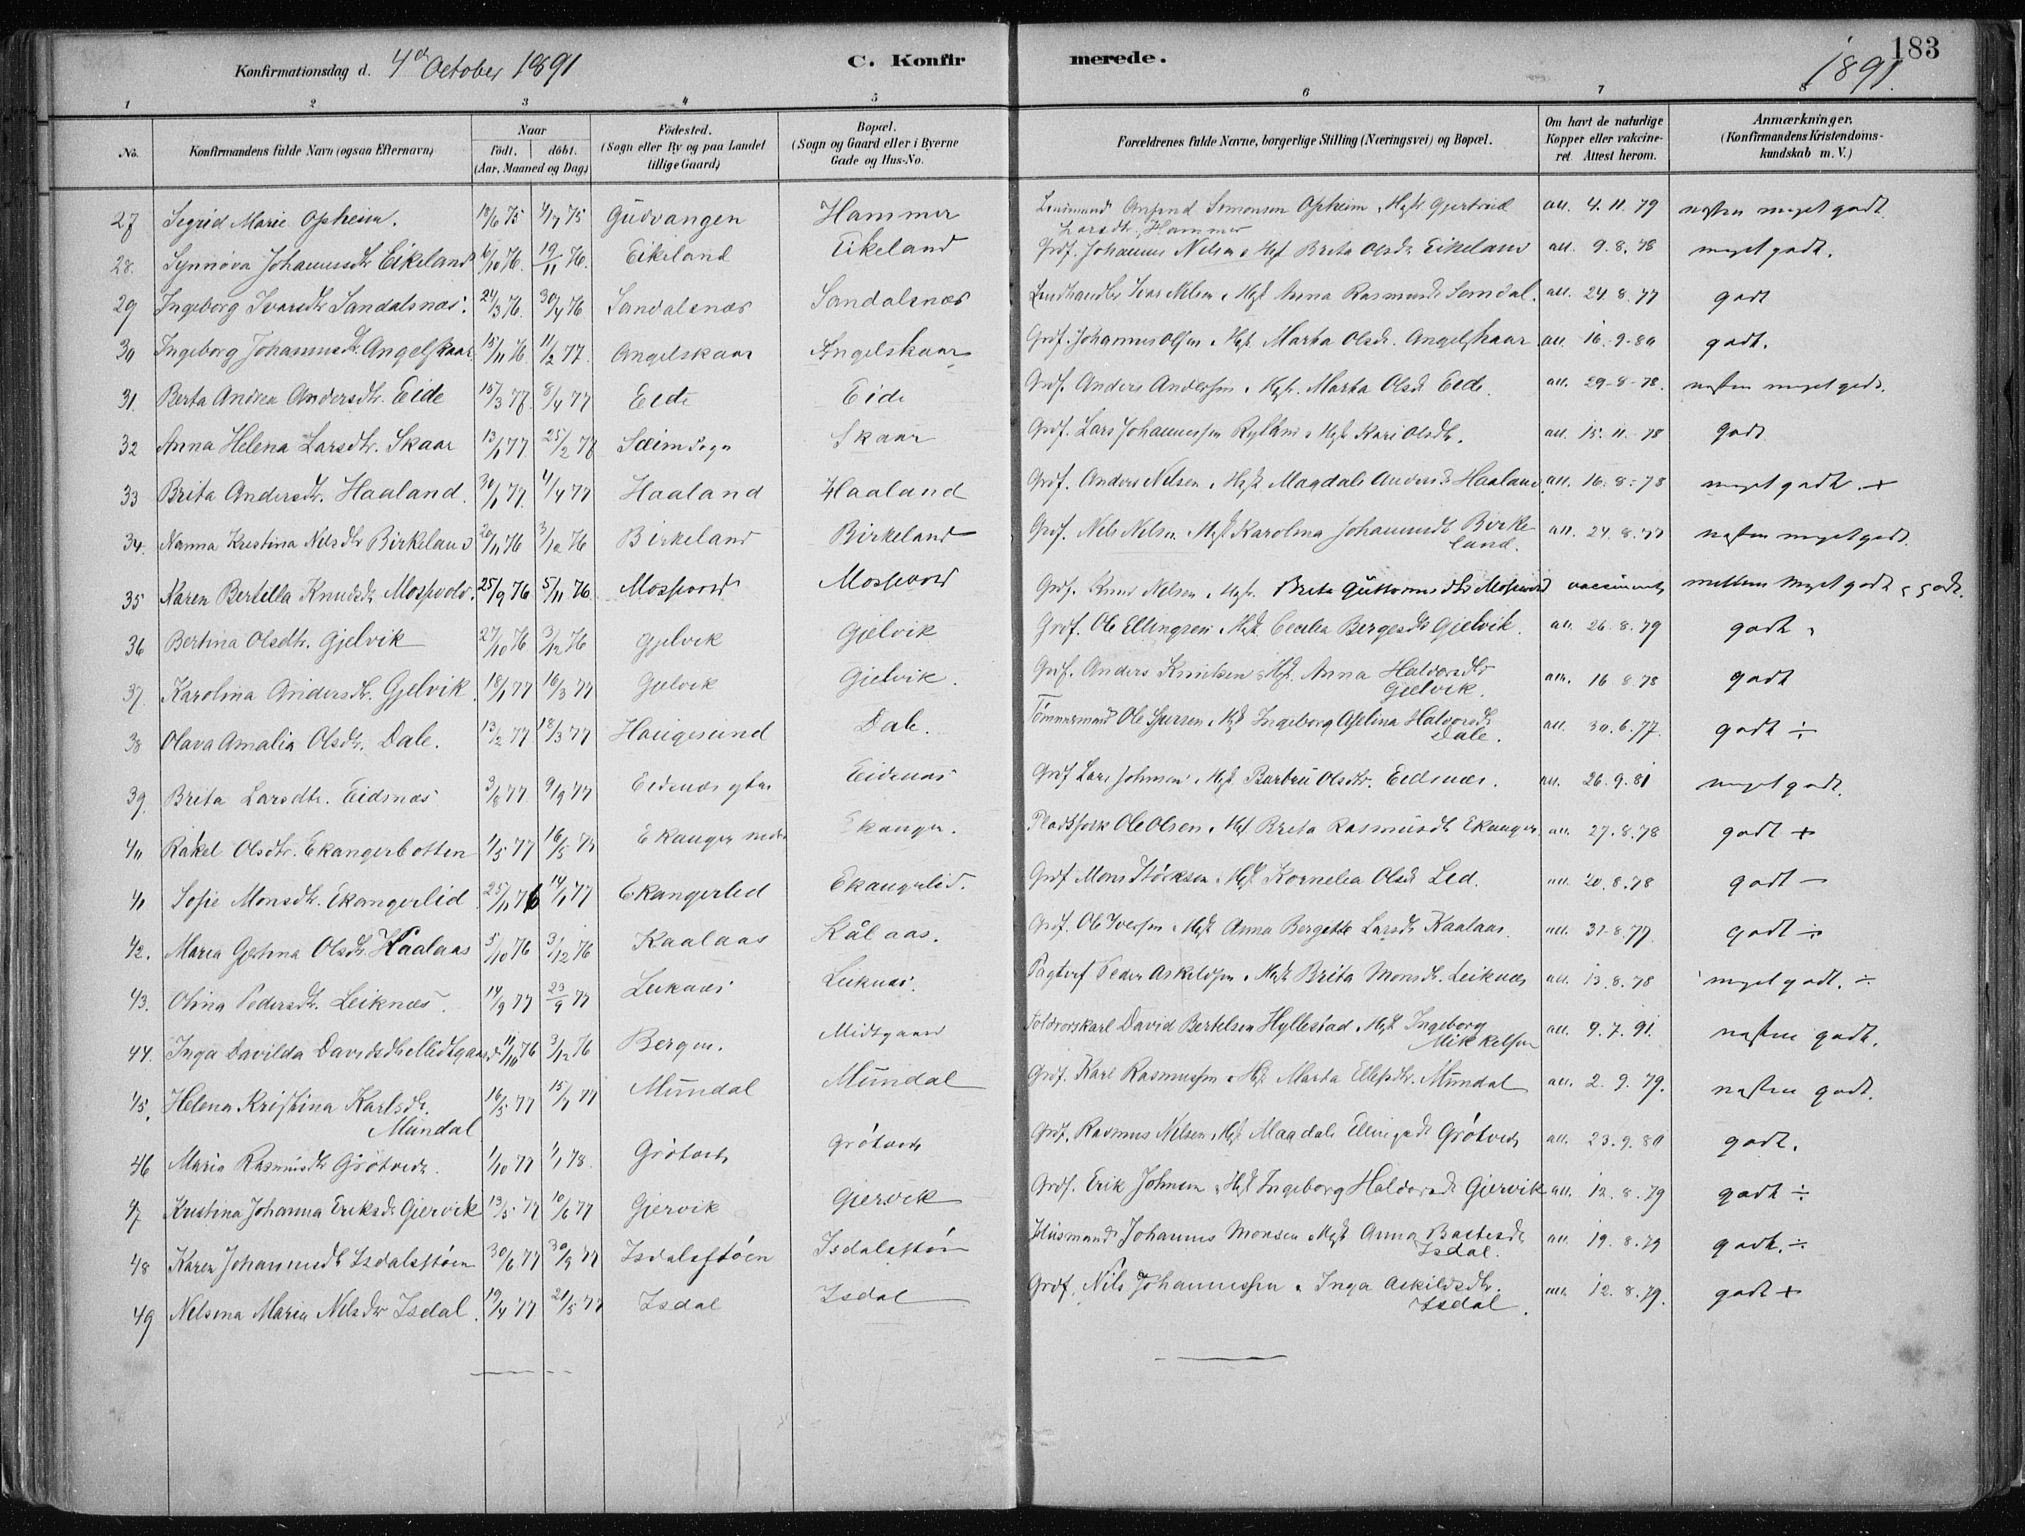 183
Konfirmationsdag d. 4de October 1891 C. Konfirmerede. 1891.
1 2 3 4 5 6 7 8
No. Konfirmandens fulde Navn (ogsaa Efternavn) Naar født. døbt. (Aar, Maaned og Dag) Fødested. (Sogn eller By og paa Landet tillige Gaard) Bopæl. (Sogn og Gaard eller i Byerne Gade og Hus-No. Forældrenes fulde Navne, borgerlige Stilling (Næringsvei) og Bopæl. Om havt de naturlige Kopper eller vakcineret Attest herom. Anmærkninger. (Konfirmandens Kristendomskundskab m. V.)
27 Sigrid Marie Opheim. 18/6 75 4/7 75 Gudvangen Hammer Lensmand Simonsen Opheim Hgst. Gjertrud Larsdtr. Hammer att. 4.11.79 næsten meget godt.
28. Synnøva Johannesdtr Eikeland 6/10 76. 19/11 76. Eikeland Eikeland Grdf. Johannes Nilsen & Hgst Brita Olsdtr Eikeland att. 9.8.78 meget godt.
29 Ingeborg Ivarsdtr Sandalsnæs. 24/3 76. 30/4 76 Sandalsnæs Sandalsnæs Landhandler Ivar Nilsen & Hgst Anna Rasmusdtr Sandal. att. 24.8.77 godt
30 Ingeborg Johannesdtr. Angelskaar 15/11 76 11/2 77. Angelskaar Angelskaar Grdf. Johannes Olsen & Hgst Marta Olsdtr. Angelskaar att. 16.9.80 godt.
31. Berta Andrea Andersdtr. Eide 15/3 77. 8/4 77 Eide Eide Grdf. Anders Andersen & Hgst. Marta Olsdtr Eide. att. 29-8-78. næsten meget godt.
32 Anna Helena Larsdtr. Skaar 13/1 77 25/2 77 Sæimsogn Skaar Grdf. Lars Johannessen & Hgst Kari Olsdtr. att. 15.11.78 godt
33 Brita Andersdtr. Haaland 30/1 77. 4/4 77 Haaland Haaland Grdf. Anders Nilsen & Hgst. Magdale Andersdtr Haaland. att. 16.8.78 meget godt. +
34. Nanna Kristina Nilsdtr Birkeland 20/11 76 3/12 76 Birkeland Birkeland Grdf. Nils Nilsen & Hgst Karolina Johannesdtr Birkeland. att. 24.8.77 næsten meget godt.
35 Karen Bertella Knudsdtr Mosfvold. 25/9 76 5/11 76. Grdf. Knud Nilsen & Hgst. Brita Guttormsdtr mellem meget godt & godt.
36 Bertina Olsdtr. Gjelvik 27/10 76 3/12 76 Gjelvik Gjelvik Grdf. Ole Ellingsen & Hgst. Cecilia Bergesdtr Gjelvik. att. 26.8.79 godt.
37. Karolina Andersdtr. Gjelvik. 18/1 77 16/3 77 Gjelvik Gjelvik. Grdf. Anders Knudsen & Hgst. Anna Haldorsdtr Gjelvik. att. 16.8.78 godt
38 Olava Amalia Olsdtr. Dale. 13/2 77 18/3 77 Haugesund Dale. Tømmermand Ole & Hgst Ingeborg Halvorsdtr. Dale. att. 30.6.77. godt ÷
39. Brita Larsdtr. Eidsnæs 3/8 77 9/9 77 Eidsnæs ytre Eidsnæs Grdf Lars Johnsen & Hgst. Barbru Olsdtr. Eidsnæs. att. 26.9.81 meget godt.
40 Rakel Olsdtr. Ekangerbotten 1/5 77 16/5 77 Ekanger nedre Ekanger. Pladsfolk Ole Olsen & Hgst Brita Rasmusdtr Ekanger att. 27.8.78 godt +
41 Sofie Monsdtr. Ekangerlid 25/11 76 14/1 77 Ekangerlid Ekangerlid. Grdf Mons & Hgst Kornelia Olsdtr Lid. att. 20.8.78 godt —
42. Maria Gjertina Olsdtr. Kaalaas 5/10 76 3/12 76 Kaalaas Kålaas. Grdf. Ole Iversen & Hgst Anna Bergitte Larsdtr Kaalaas att. 31.8.77. godt ÷
43. Olina Pedersdtr. Leiknæs. 14/9 77 23/9 77 Leiknæs Leiknæs. Peder Askeldsen & Hgst Brita Monsdtr. Leiknæs att. 13.8.78 meget godt. ÷
44. Inga Davilda Davidsdtr Midtgaard 11/10 76 3/12 76 Bergen. Midtgaard Toldrorskarl David Bertelsen Hyllestad & Hgst Ingeborg Mikkelsen att. 9.7.91. næsten godt.
45. Helena Kristina Karlsdtr. Mundal 16/5 77 15/7 77 Mundal Mundal Grdf. Karl Rasmussen & Hgst Marta Mundal att. 2.9.79. næsten godt.
46 Maria Rasmusdtr Grøtvedt. 1/10 77 1/1 78. Grøtvedt Grøtvedt Grdf. Rasmus Nilsen & Hgst. Magdale Grøtvedt att. 23.9.80 godt.
47 Kristina Johanna Eriksdtr Gjervik 13/5 77 10/6 77 Gjervik Gjervik Grdf. Erik Johnsen & Hgst Ingeborg Haldorsdtr Gjervik att. 12.8.79 godt ÷
48 Karen Johannesdtr Isdalsstøen 30/6 77 30/9 77 Isdalsstøen Isdalsstøen Husmand Johannes Monsen & Hgst Anna Isdal. att. 19.8.79 godt. ÷
49 Nilsina Maria Nilsdtr Isdal. 19/4 77 21/5 77 Isdal Isdal Grdf. Nils Johannessen & Inga Askildsdtr. Isdal. att. 12.8.79. godt +